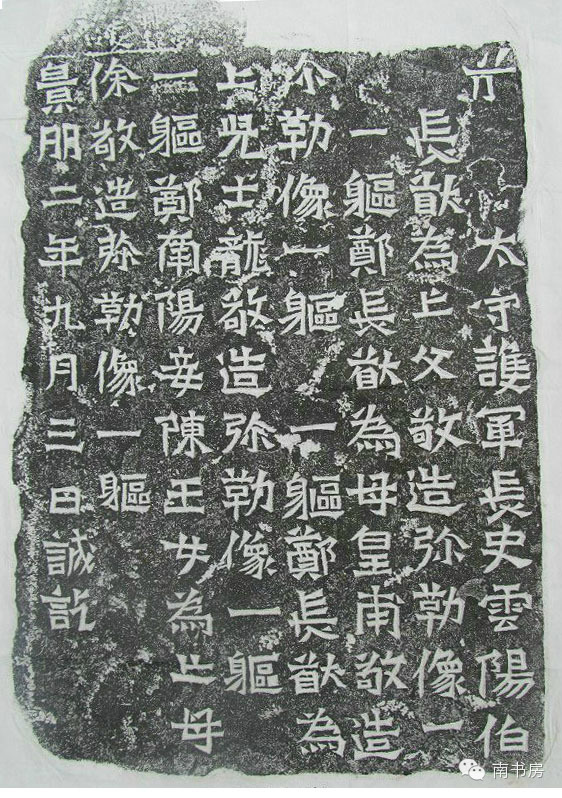 太守護軍長史雲陽伯
長猷為亡父敬造弥勒像一
一軀鄭長猷為母皇甫敬造
弥勒像一軀一軀鄭長猷為
亡兒士龍敬造弥勒像一軀
一軀鄭南陽妾陳玉女為亡母
徐敬造弥勒像一軀
景明二年九月三日誡訖
南书房